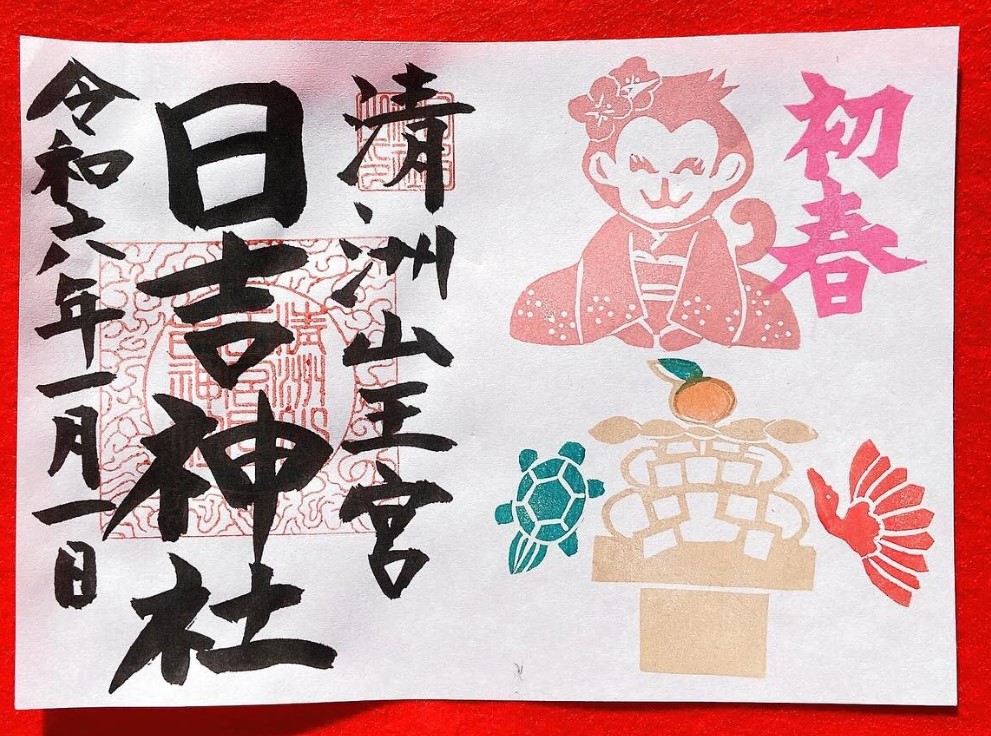 初春
清洲山王宮
日吉神社
令和六年一月一日